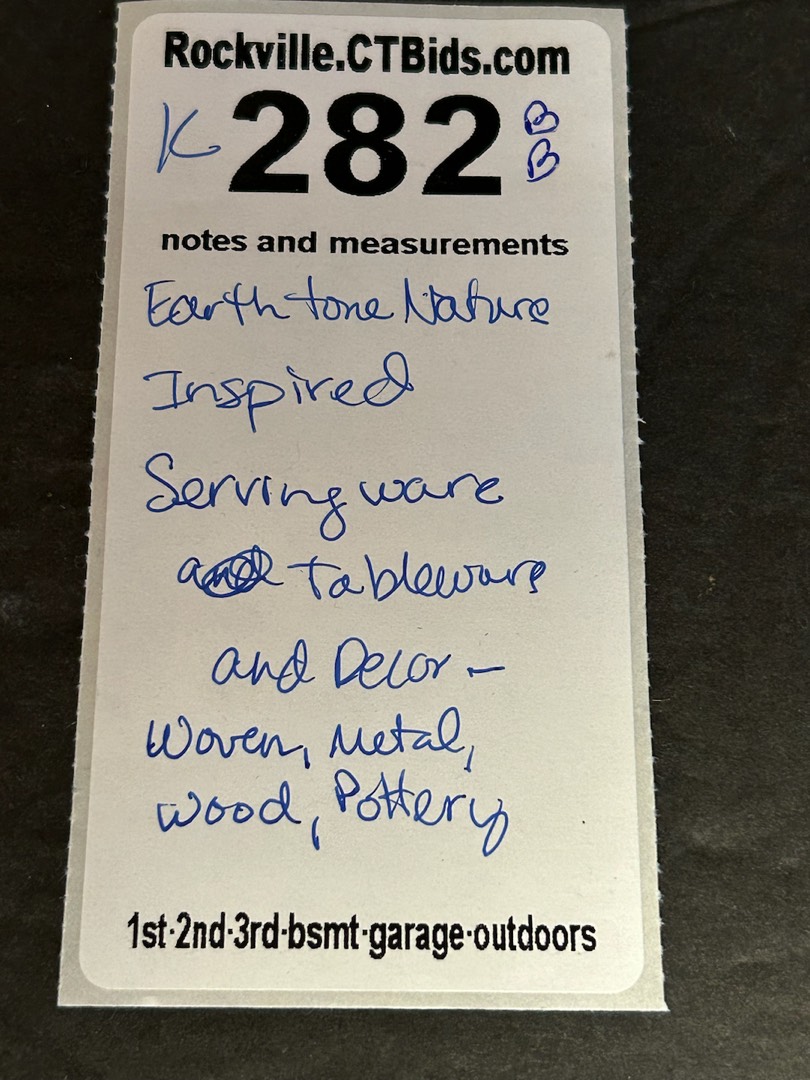 Rockville.CTBids.com
K 282 B B
notes and measurements
Earthtone Nature
Inspired
Serving ware
Tableware
and Decor –
Woven, Metal,
Wood, Pottery
1st·2nd·3rd·bsmt·garage·outdoors